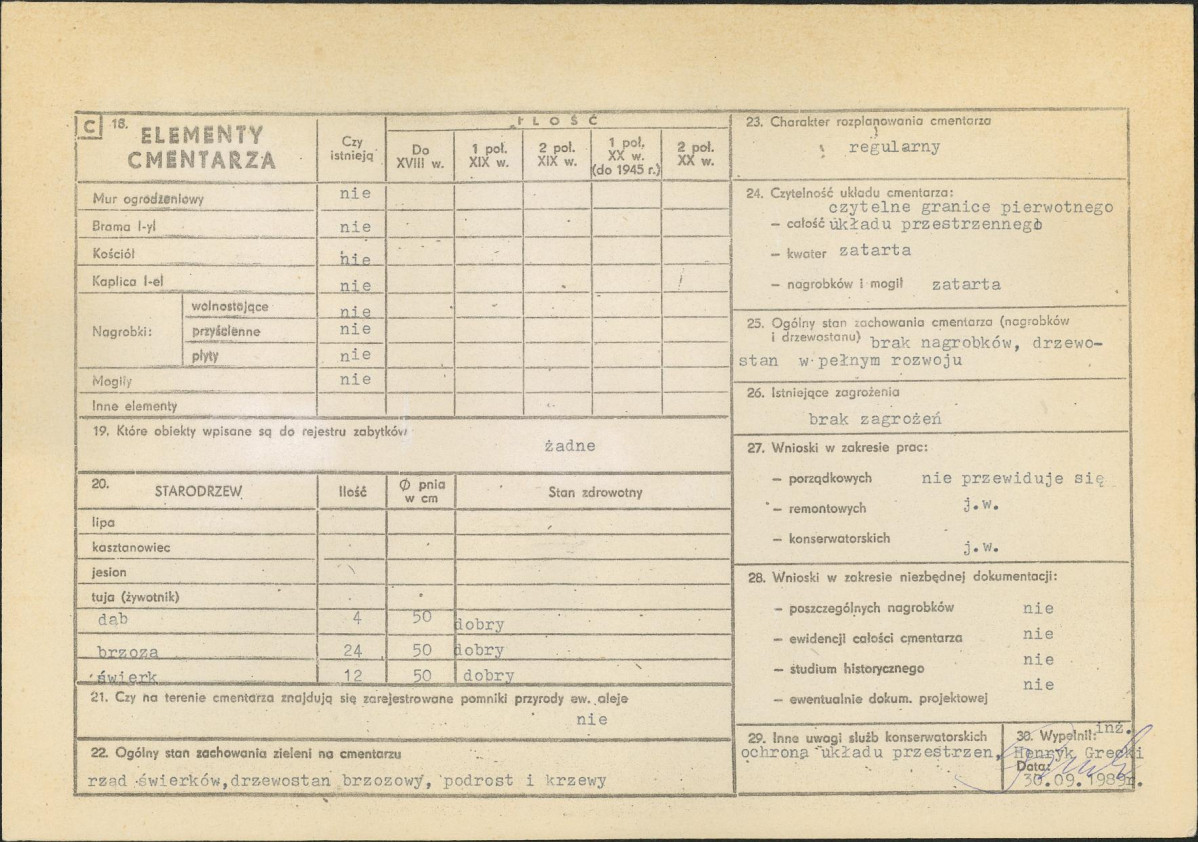 C 18. ELEMENTY
CMENTARZA
Czy
istnieją
ILOŚĆ
Do
XVIII w.
1 poł.
XIX w.
2 poł.
XIX w.
1 poł.
XX w.
(do 1945 r.)
2 poł.
XX w.
Mur ogrodzeniowy nie
Brama I-yl nie
Kościół nie
Kaplica I-el nie
Nagrobki:
wolnostojące nie
przyścienne nie
płyty nie
Mogiły nie
Inne elementy
19. Które obiekty wpisane są do rejestru zabytków
żadne
20. STARODRZEW Ilość Ø pnia
w cm
Stan zdrowotny
lipa
kasztanowiec
jesion
tuja (żywotnik)
dąb 4 50 dobry
brzoza 24 50 dobry
świerk 12 50 dobry
21. Czy na terenie cmentarza znajdują się zarejestrowane pomniki przyrody ew. aleje
nie
22. Ogólny stan zachowania zieleni na cmentarzu
rząd świerków, drzewostan brzozowy, podrost i krzewy
23. Charakter rozplanowania cmentarza
regularny
24. Czytelność układu cmentarza:
czytelne granice pierwotnego
— całość układu przestrzennego
— kwater zatarta
— nagrobków i mogił zatarta
25. Ogólny stan zachowania cmentarza (nagrobków
i drzewostanu) brak nagrobków, drzewo-
stan w pełnym rozwoju
26. Istniejące zagrożenia
brak zagrożeń
27. Wnioski w zakresie prac:
— porządkowych nie przewiduje się
— remontowych j.w.
— konserwatorskich j.w.
28. Wnioski w zakresie niezbędnej dokumentacji:
— poszczególnych nagrobków nie
— ewidencji całości cmentarza nie
— studium historycznego nie
— ewentualnie dokum. projektowej nie
29. Inne uwagi służb konserwatorskich
ochrona układu przestrzen.
30. Wypełnił: inż.
Henryk Grecki
Data:
30.09.1989r.